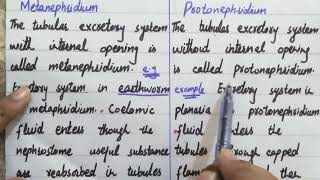 Metanephridium
The tubular excretory system
with internal opening is
called metanephridium. e.g
Excretory system in earthworm
metaphridium. Coelomic
fluid enters through the
nephrostome useful substance
are reabsorbed in tubules
Protonephridium
The tubules excretory system
without internal opening
is called protonephridium.
example Excretory system in
planaria protonephridium
fluid enters the
tubules through capped